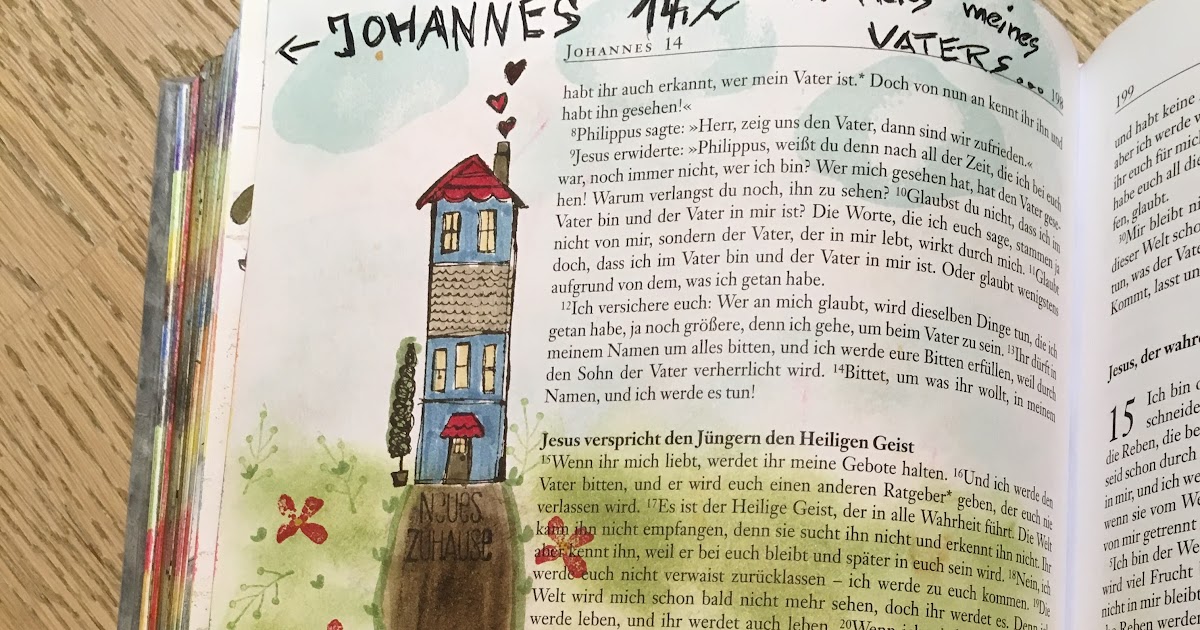 ← JOHANNES 14,2
meines
VATERS...
JOHANNES 14
198
habt ihr auch erkannt, wer mein Vater ist.* Doch von nun an kennt ihr ihn und
habt ihn gesehen!«
8Philippus sagte: »Herr, zeig uns den Vater, dann sind wir zufrieden.«
9Jesus erwiderte: »Philippus, weißt du denn nach all der Zeit, die ich bei euch
war, noch immer nicht, wer ich bin? Wer mich gesehen hat, hat den Vater gese-
hen! Warum verlangst du noch, ihn zu sehen? 10Glaubst du nicht, dass ich im
Vater bin und der Vater in mir ist? Die Worte, die ich euch sage, stammen ja
nicht von mir, sondern der Vater, der in mir lebt, wirkt durch mich. 11Glaubt
doch, dass ich im Vater bin und der Vater in mir ist. Oder glaubt wenigstens
aufgrund von dem, was ich getan habe.
12Ich versichere euch: Wer an mich glaubt, wird dieselben Dinge tun, die ich
getan habe, ja noch größere, denn ich gehe, um beim Vater zu sein. 13Ihr dürft in
meinem Namen um alles bitten, und ich werde eure Bitten erfüllen, weil durch
den Sohn der Vater verherrlicht wird. 14Bittet, um was ihr wollt, in meinem
Namen, und ich werde es tun!
Jesus verspricht den Jüngern den Heiligen Geist
15Wenn ihr mich liebt, werdet ihr meine Gebote halten. 16Und ich werde den
Vater bitten, und er wird euch einen anderen Ratgeber* geben, der euch nie
verlassen wird. 17Es ist der Heilige Geist, der in alle Wahrheit führt. Die Welt
kann ihn nicht empfangen, denn sie sucht ihn nicht und erkennt ihn nicht. Ihr
aber kennt ihn, weil er bei euch bleibt und später in euch sein wird. 18Nein, ich
werde euch nicht verwaist zurücklassen – ich werde zu euch kommen. 19Die
Welt wird mich schon bald nicht mehr sehen, doch ihr werdet es. Denn
werde leben, und ihr werdet auch leben. 20Wenn ich
NEUES
ZUHAUSE
199
und habt keine
aber ich werde
ihr euch für mich
habe euch all die
fen, glaubt.
30Mir bleibt
dieser Welt scho
tun, was der Vate
Kommt, lasst un
Jesus, der wahr
15 Ich bin
schneide
die Reben, die be
seid schon durch
in mir, und ich we
wenn sie vom We
von mir getrennt
5Ich bin der We
wird viel Frucht
nicht in mir bleibt
Reben werde